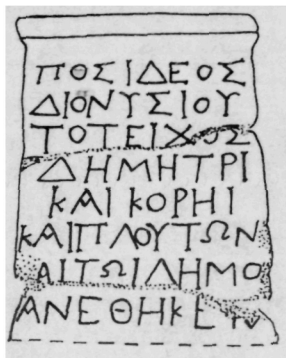 ΠΟΣΙΔΕΟΣ
ΔΙΟΝΥΣΙΟΥ
ΤΟΤΕΙΧΟΣ
ΔΗΜΗΤΡΙ
ΚΑΙΚΟΡΗΙ
ΚΑΙΠΛΟΥΤΩΝ
ΑΙΤΩΙΔΗΜΟ
ΑΝΕΘΗΚΕΝ